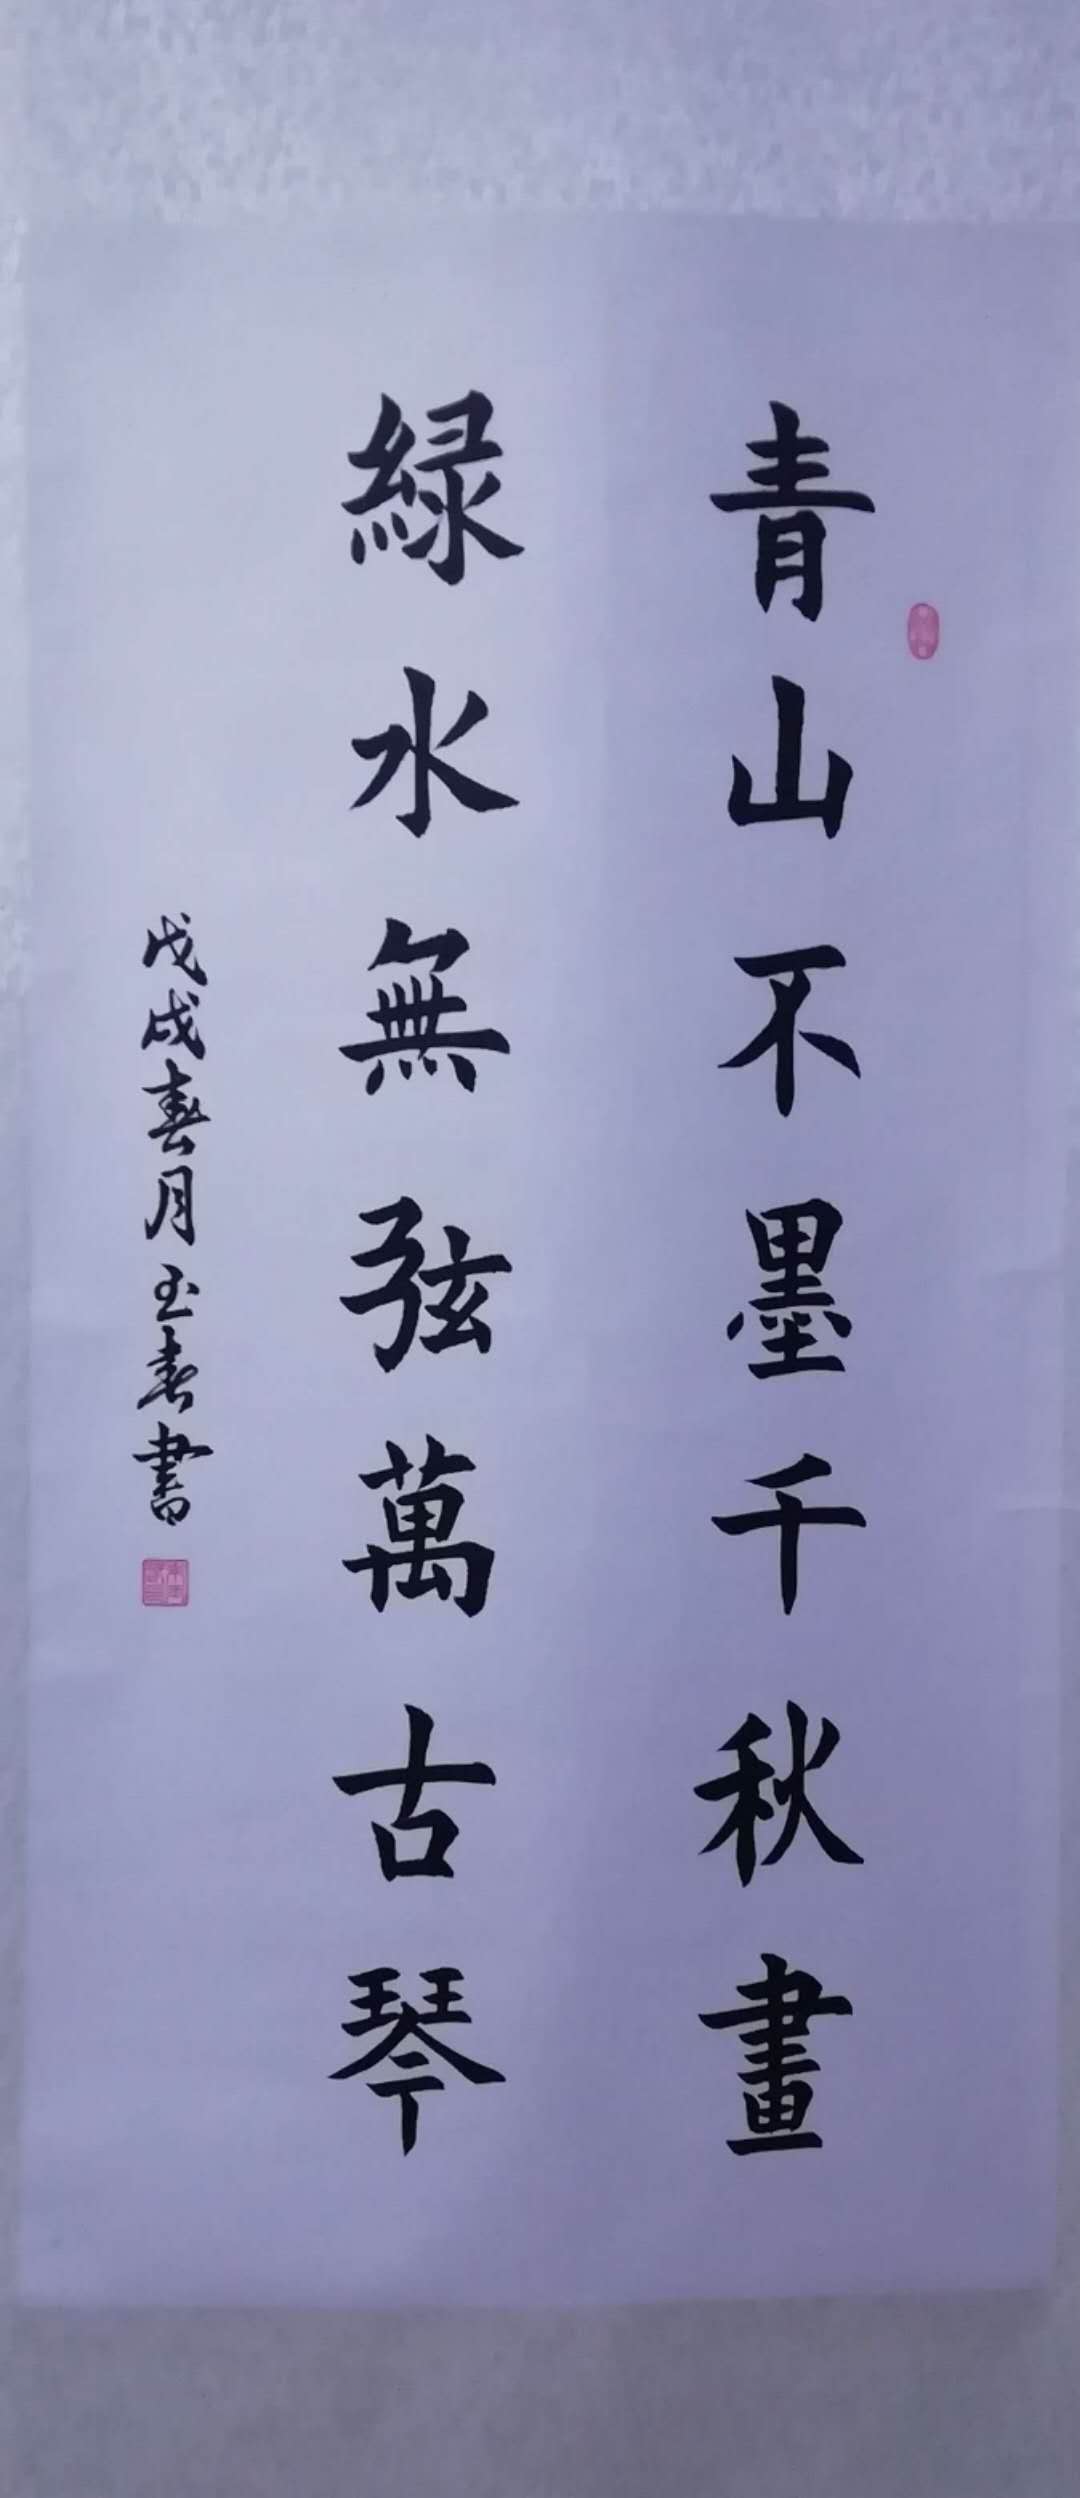 青山不墨千秋畫
緑水無弦萬古琴
戊戌春月玉春書